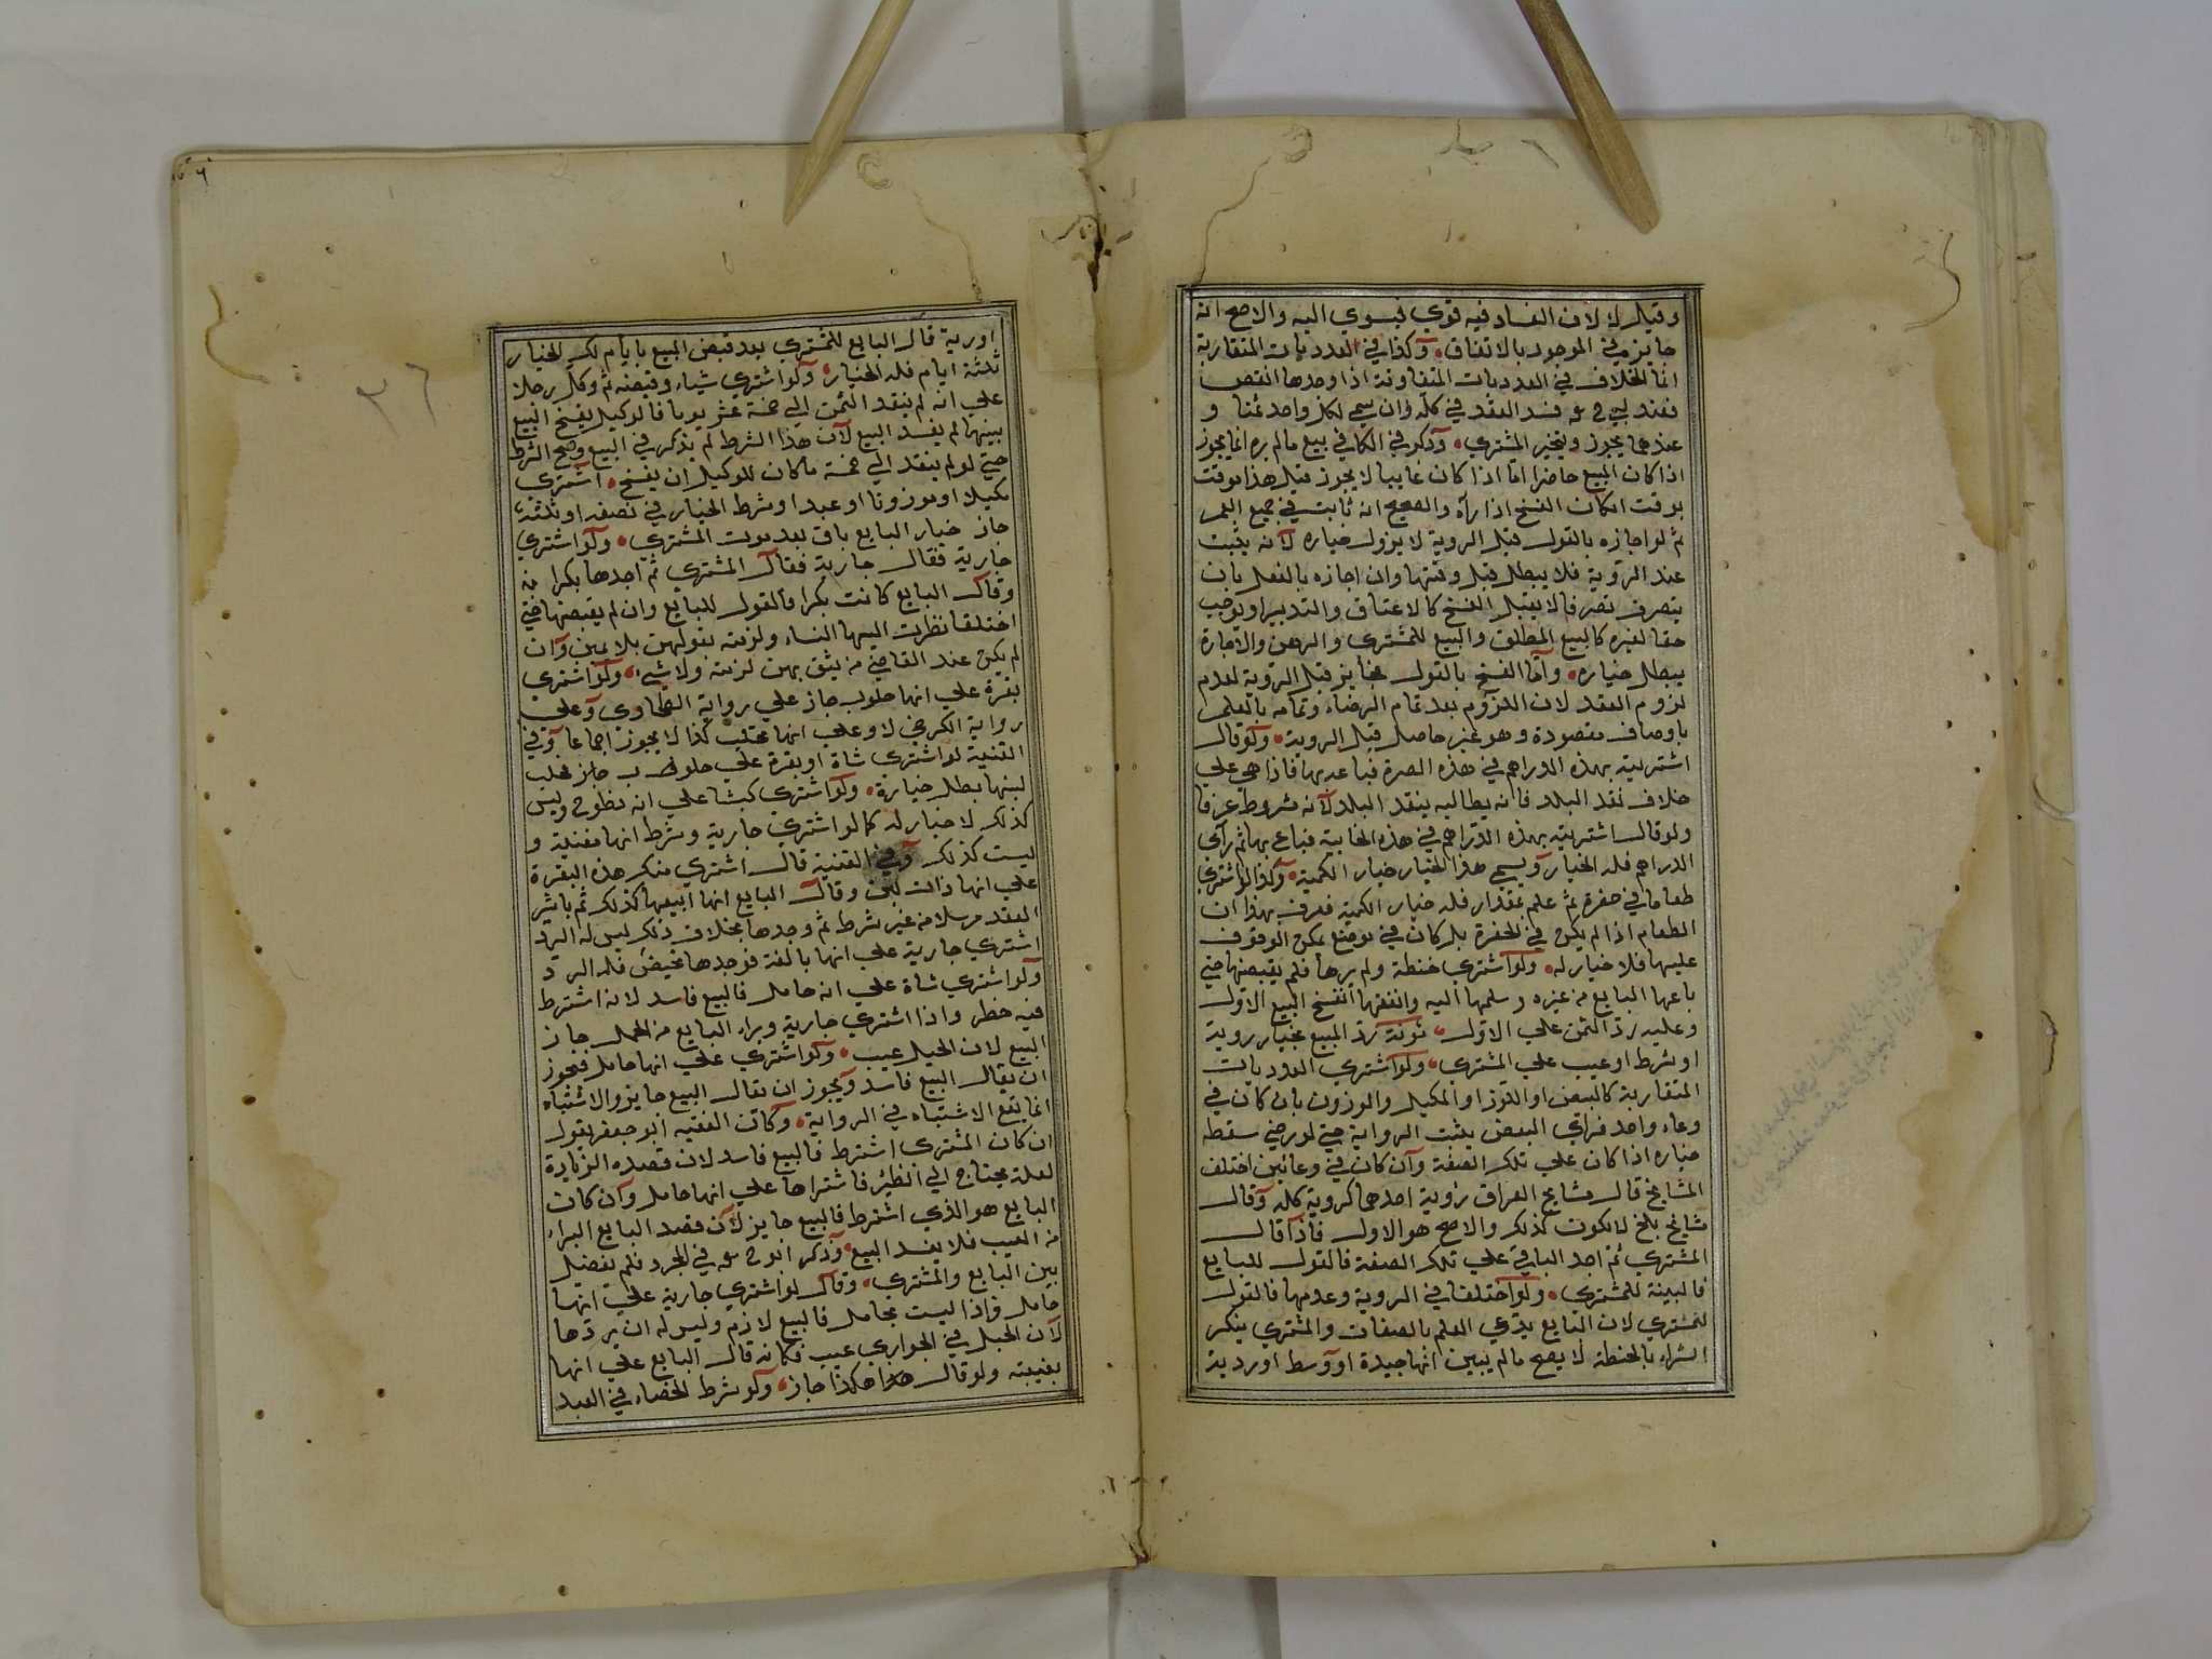 وقيل لا لان الفساد فيه قوي فيسري اليه والاصح انه
جايز في الموجود بالاتفاق وكذا في العدديات المتقاربة
انما الخلاف في العدديات المتفاوتة اذا وجدها انقص
فعند ابي ح فسد العقد في كله وان سمي لكل واحد ثمنا و
عندهما يجوز ويخير المشتري وذكر في الكافي بيع مالم يره انما يجوز
اذا كان المبيع حاضرا اما اذا كان غايبا لا يجوز قيل هذا موقت
بوقت امكان الفسخ اذا رآه والصحيح انه ثابت في جميع العمر
ثم لو اجازه بالقول قبل الروية لا يزول خياره لانه يثبت
عند الروية فلا يبطل قبل وقتها وان اجازه بالفعل بان
يتصرف تصرفا لا يقبل الفسخ كالاعتاق والتدبير او يوجب
حقا لغيره كالبيع المطلق والبيع للمشتري والرهن والاجارة
يبطل خياره واما الفسخ بالقول فجايز قبل الروية لعدم
لزوم العقد لان اللزوم بعد تمام الرضاء وتمامه بالعلم
باوصاف مقصودة وهو غير حاصل قبل الروية ولو قال
اشتريته بهذه الدراهم في هذه الصرة فباعه بها فاذا هي علي
خلاف نقد البلد فانه يطالبه بنقد البلد لانه مشروط عرفا
ولو قال اشتريته بهذه الدراهم في هذه الخابية فباع بها ثم رآي
الدراهم فله الخيار ويسمي هذا الخيار خيار الكمية وكذا لو اشتري
طعاما في حفرة ثم علم بمقدار فله خيار الكمية فعرف بهذا ان
الطعام اذا لم يكن في الحفرة بل كان في موضع يمكن الوقوف
عليها فلا خيار له ولو اشتري حنطة ولم يرها فلم يقبضها حتي
باعها البايع من غيره وسلمها اليه وانفقها انفسخ البيع الاول
وعليه رد الثمن علي الاول مؤنة رد المبيع بخيار روية
او شرط او عيب علي المشتري ولو اشتري العدديات
المتقاربة كالبيض او الجوز او المكيل والموزون بان كان في
وعاء واحد فراي البعض يثبت الرواية حتي لو رضي سقط
خياره اذا كان علي تلك الصفة وان كان في وعائين اختلف
المشايخ قال مشايخ العراق روية احدهما كروية كله وقال
مشايخ بلخ لا يكون كذلك والاصح هو الاول فاذا قال
المشتري ثم اجد الباقي علي تلك الصفة فالقول للبايع
فالبينة للمشتري ولو اختلفا في الروية وعدمها فالقول
للمشتري لان البايع يدعي العلم بالصفات والمشتري ينكر
الشراء بالحنطة لا يصح مالم يبين انها جيدة او وسط او ردية
او رية قال البايع للمشتري بعد قبض المبيع بايام لك الخيار
ثلثة ايام فله الخيار ولو اشتري شياء وقبضه ثم وكل رجلا
علي انه لم ينقد الثمن الي خمسة عشر يوما فالوكيل يفسخ البيع
بينهما لم يفسد البيع لان هذا الشرط لم يذكر في البيع وصح الشرط
حتي لو لم ينقد الي خمسة ما كان للوكيل ان يفسخ اشتري
مكيلا او موزونا او عبدا وشرط الخيار في نصفه او ثلثه
جاز خيار البايع باق بعد موت المشتري ولو اشتري
جارية فقال جارية فقال المشتري ثم اجدها بكرا منه
وقال البايع كانت بكرا فالقول للبايع وان لم يقبضها حتي
اختلفا نظرت اليها النساء ولزمته بقولهن بلا يمين وان
لم يكن عند القاضي من يثق بهن لزمته ولا شيء ولو اشتري
بقرة علي انها حلوب جاز علي رواية الطحاوي وعلي
رواية الكرخي لا وعلي انها تحلب كذا لا يجوز اجماعا وفي
القنية لو اشتري شاة او بقرة علي حلوب جاز فحلب
لبنها بطل خياره ولو اشتري كبشا علي انه نطوح وليس
كذلك لا خيار له كما لو اشتري جارية وشرط انها مغنية و
ليست كذلك وفي القنية قال اشتري منك هذه البقرة
علي انها ذات لبن وقال البايع انها ابيعها كذلك ثم باشر
العقد مرسلا من غير شرط ثم وجدها بخلاف ذلك ليس له الرد
اشتري جارية علي انها بالغة فوجدها تحيض فله الرد
ولو اشتري شاة علي انه حامل فالبيع فاسد لانه اشترط
فيه خطر واذا اشتري جارية وبراء البايع من الحمل جاز
البيع لان الحبل عيب ولو اشتري علي انها حامل فيجوز
ان يقال البيع فاسد ويجوز ان يقال البيع جايز والاشتباه
انما يقع الاشتباه في الرواية وكان الفقيه ابو جعفر يقول
ان كان المشتري اشترط فالبيع فاسد لان قصده الزيادة
لعله يحتاج الي الظئر فاشتراها علي انها حامل وان كان
البايع هو الذي اشترط فالبيع جايز لان قصد البايع البراء
من العيب فلا يفسد البيع وذكر ابو ح في المجرد فلم يفصل
بين البايع والمشتري وقال لو اشتري جارية علي انها
حامل فاذا ليست بحامل فالبيع لازم وليس له ان يردها
لان الحبل في الجواري عيب فكانه قال البايع علي انها
بغيبته ولو قال هذا هكذا جاز ولو شرط الخصاء في العبد